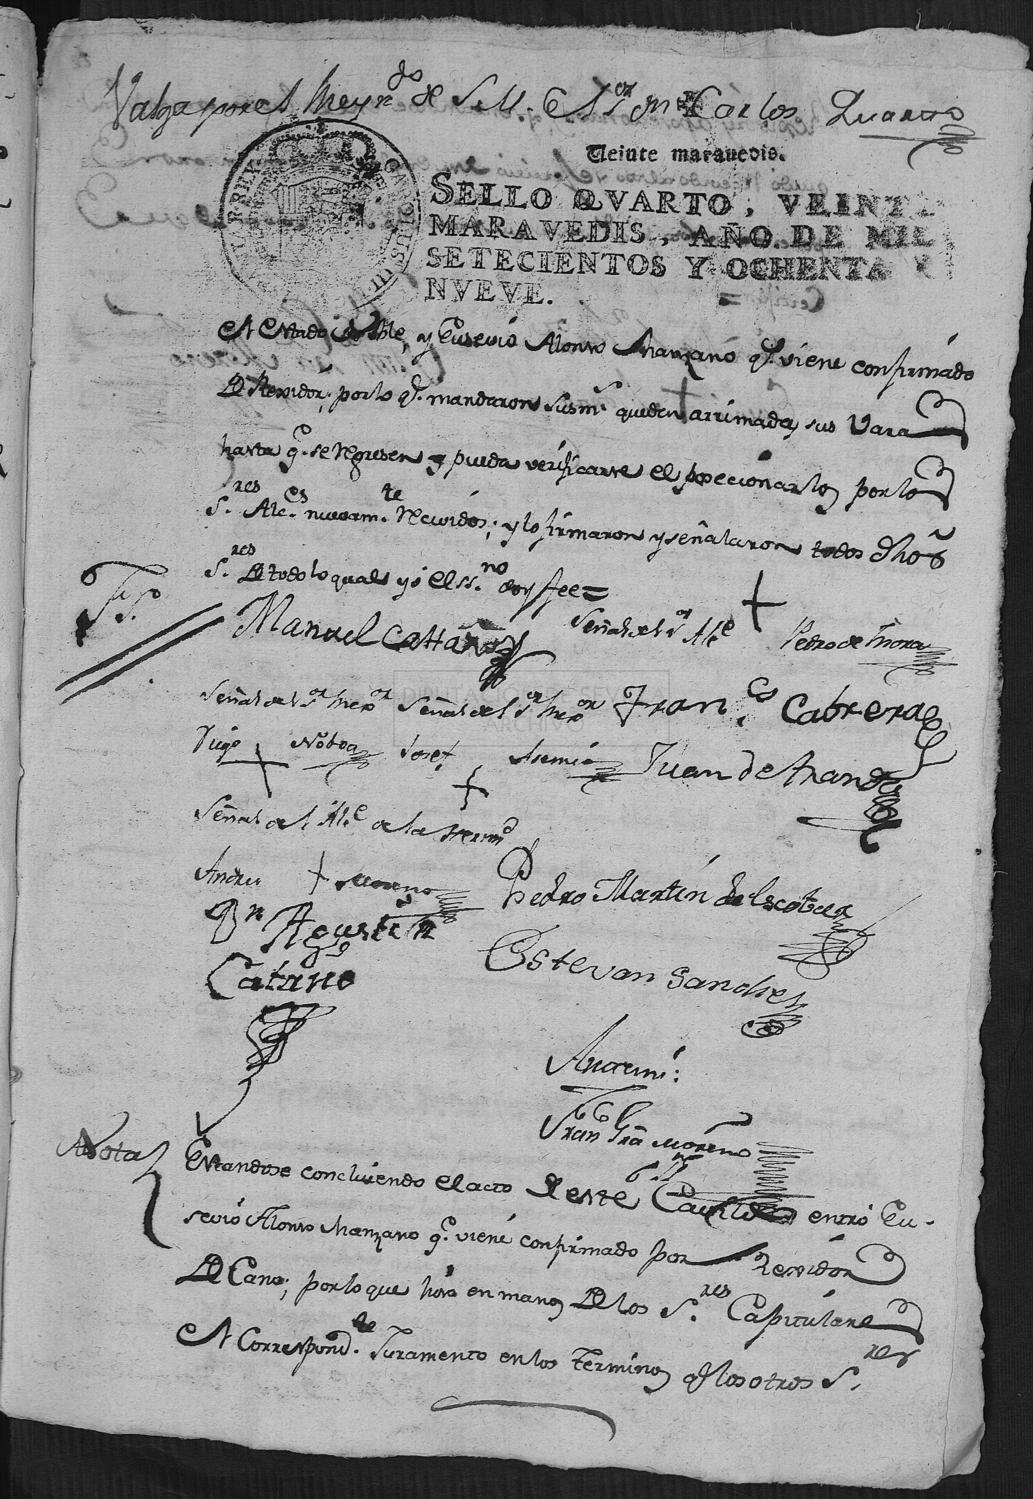 Valga por el Reyn.do de S. M. el S.or Dn. Carlos Quarto
Veinte maravedis.
SELLO QVARTO, VEINTE
MARAVEDIS, AÑO DE MIL
SETECIENTOS Y OCHENTA Y
NVEVE.
el estado Noble, y Eusevio Alonso Manzano q.e viene confirmado
de Rexidor; por lo q.e mandaron sus m.s queden arrimadas sus Varas
hasta q.e se regresen y pueda verificarse el posecionarlos por los
S.res Alc.es nuevam.te Recividos; y lo firmaron y señalaron todos dhos
S.res de todo lo qual yo el ss.no doy fee=
Manuel Cattaño
Señal del S.or Alc.e
Pedro de Mora
Señal del S.or Rex.or Señal del S.or Rex.or Fran.co Cabrera
Diego Noboa Josef Asencio Juan de Aranda
Señal del Alc.e de la Herm.d
Andres Moreno
Pedro Martin de Escobar
Agustin
Cataño
Estevan Sanches
Antemi:
Fran Gra Moreno
Nota
Estandose concluiendo el acto de este Cavildo entró Eu-
sevio Alonso Manzano q.e viene confirmado por Rexidor
de Cano; por lo que hizo en manos de los S.res Capitulares
el Correspond.te Juramento en los terminos q.e los otros S.res